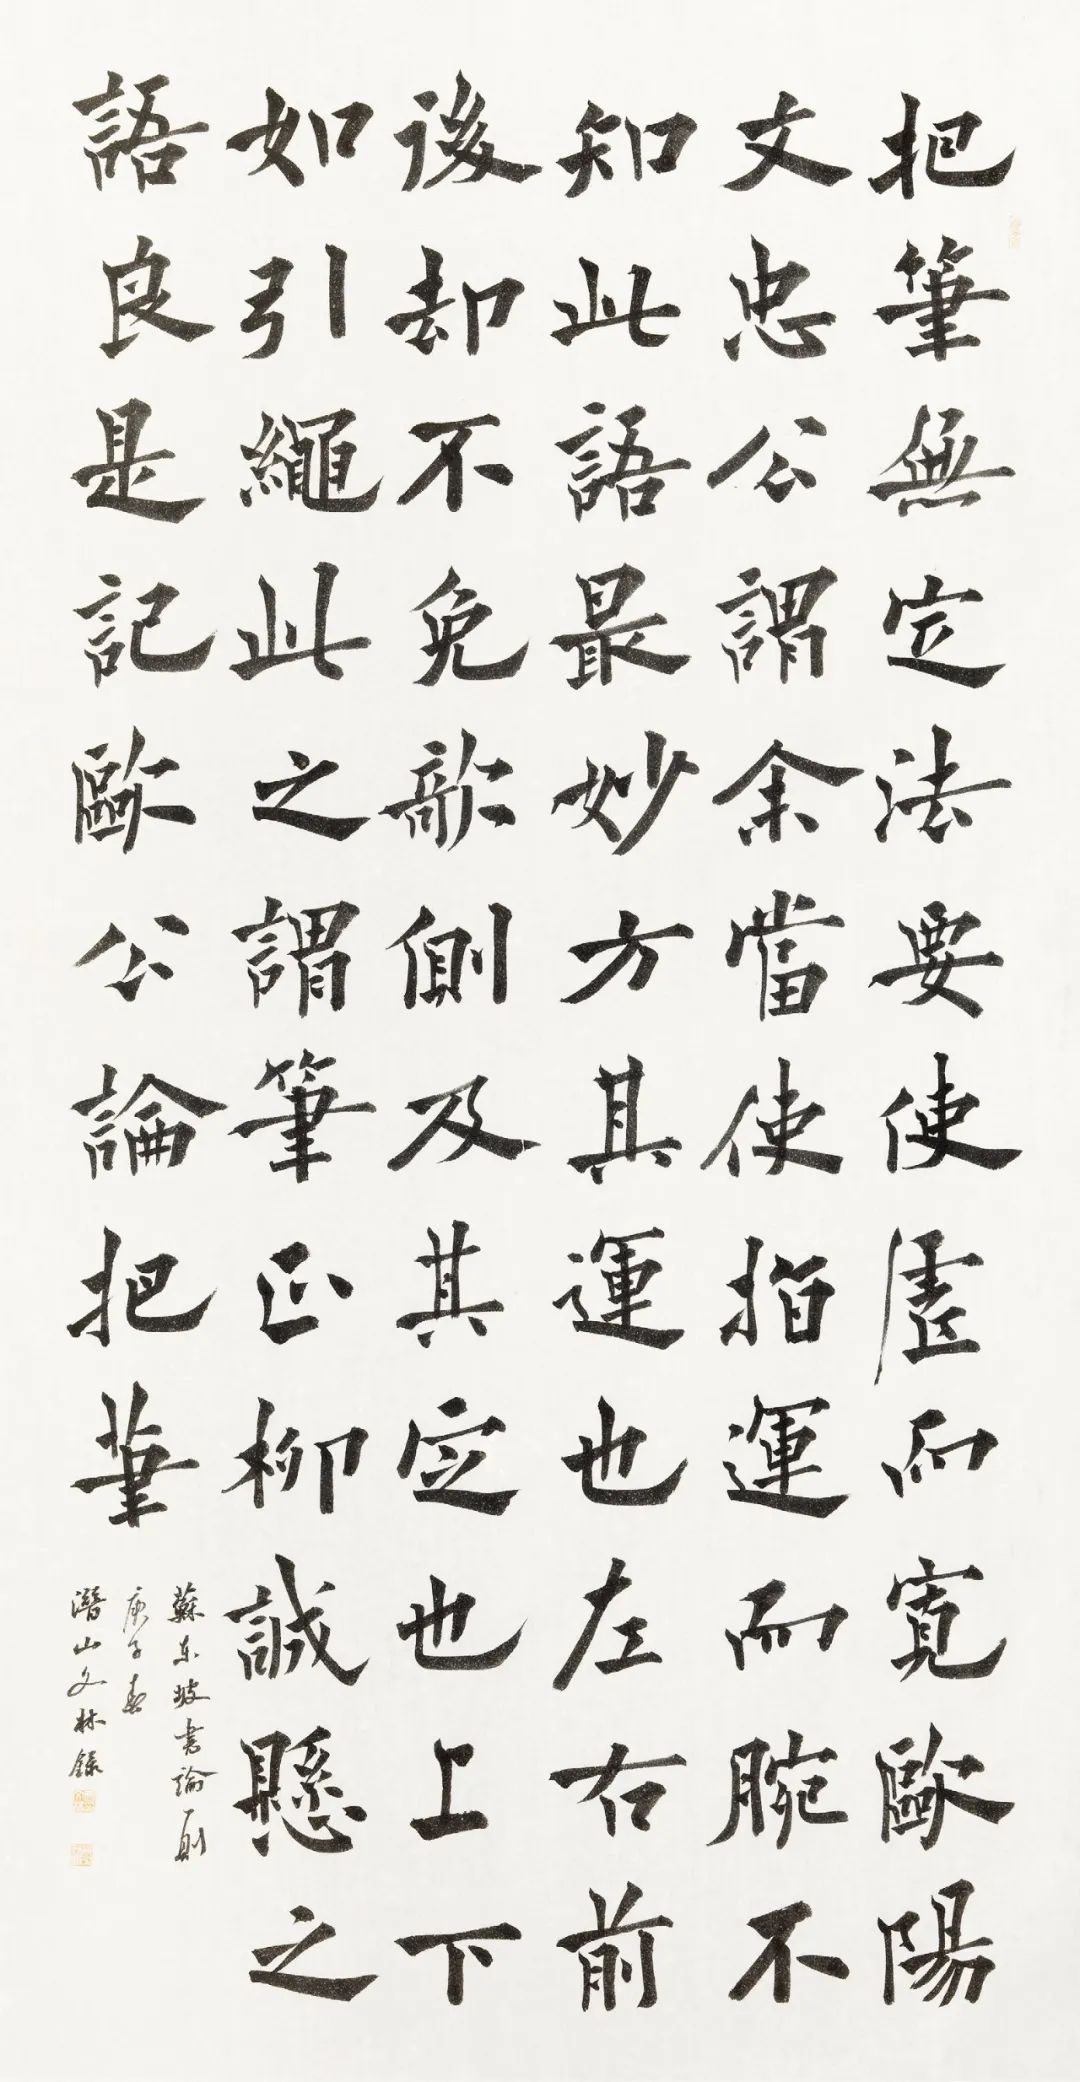 把筆無定法要使虛而寬歐陽
文忠公謂余當使指運而腕不
知此語最妙方其運也左右前
後却不免欹側及其定也上下
如引繩此之謂筆正柳誠懸之
語良是記歐公論把筆
蘇東坡書論一則
庚子春
潛山文林錄